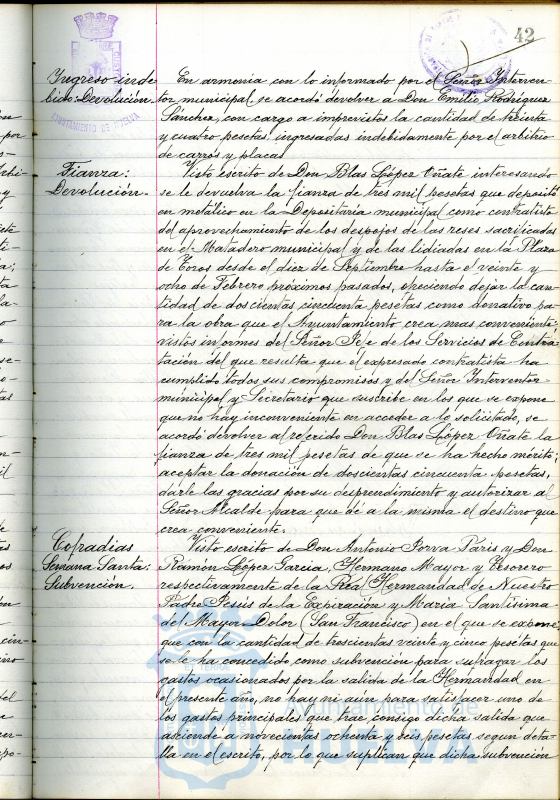 42
Ingreso inde
bido: Devolución.
En armonia con lo informado por el Señor Interven-
tor municipal, se acordó devolver a Don Emilio Rodriguez
Sanchez, con cargo a imprevistos la cantidad de treinta
y cuatro pesetas, ingresadas indebidamente por el arbitrio
de carros y placas
Fianza:
Devolución.
Visto escrito de Don Blas López Oñate interesando
se le devuelva la fianza de tres mil pesetas que depositó
en metálico en la Depositaria municipal como contratista
del aprovechamiento de los despojos de las reses sacrificadas
en el Matadero municipal y de las lidiadas en la Plaza
de Toros desde el diez de Septiembre hasta el veinte y
ocho de Febrero próximos pasados, ofreciendo dejar la can-
tidad de doscientas cincuenta pesetas como donativo pa-
ra la obra que el Ayuntamiento crea mas conveniente
vistos informes del Señor Jefe de los Servicios de Contra
tación del que resulta que el expresado contratista ha
cumplido todos sus compromisos y del Señor Interventor
municipal y Secretario que suscribe en los que se expone
que no hay inconveniente en acceder a lo solicitado, se
acordó devolver al referido Don Blas López Oñate la
fianza de tres mil pesetas de que se ha hecho mérito;
aceptar la donación de doscientas cincuenta pesetas,
darle las gracias por su desprendimiento y autorizar al
Señor Alcalde para que dé a la misma el destino que
crea conveniente.
Cofradias
Semana Santa:
Subvención.
Visto escrito de Don Antonio Jorva Paris y Don
Ramón López Garcia, Hermano Mayor y Tesorero
respectivamente de la Real Hermandad de Nuestro
Padre Jesús de la Expiración y Maria Santisima
del Mayor Dolor (San Francisco) en el que se expone
que con la cantidad de trescientas veinte y cinco pesetas que
se le ha concedido como subvención para sufragar los
gastos ocasionados por la salida de la Hermandad en
el presente año, no hay ni aún para satisfacer uno de
los gastos principales que trae consigo dicha salida que
asciende a novecientas ochenta y seis pesetas segun deta-
lla en el escrito, por lo que suplican que dicha subvención
AYUNTAMIENTO DE HUELVA
Ayuntamiento de
HUELVA